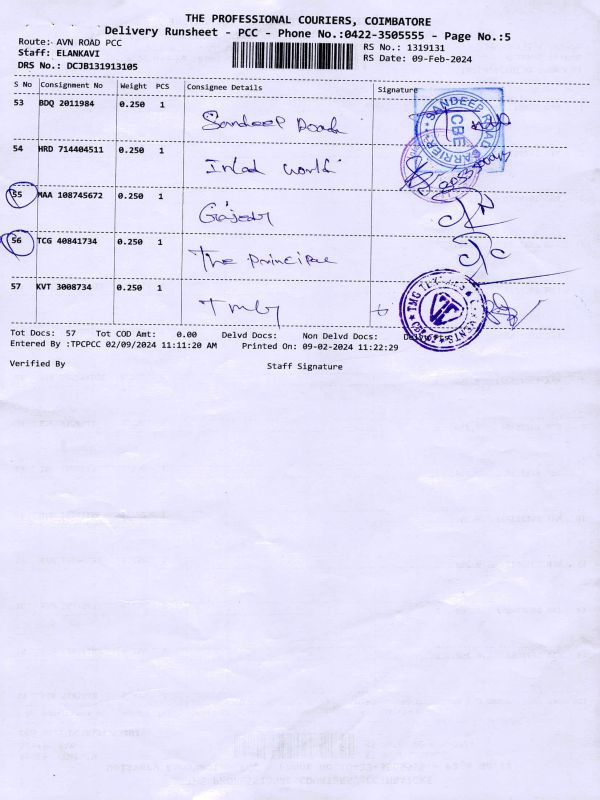 THE PROFESSIONAL COURIERS, COIMBATORE
Delivery Runsheet - PCC - Phone No.:0422-3505555 - Page No.:5
Route: AVN ROAD PCC
Staff: ELANKAVI
DRS No.: DCJB131913105
RS No.: 1319131
RS Date: 09-Feb-2024
S No Consignment No Weight PCS Consignee Details Signature
53 BDQ 2011984 0.250 1 Sandeep Road
SANDEEP ROAD CARRIER CBE
54 HRD 714404511 0.250 1 world
55 MAA 108745672 0.250 1
56 TCG 40841734 0.250 1 The principal
57 KVT 3008734 0.250 1 TMG
TMG
Tot Docs: 57 Tot COD Amt: 0.00 Delvd Docs: Non Delvd Docs:
Entered By :TPCPCC 02/09/2024 11:11:20 AM Printed On: 09-02-2024 11:22:29
Verified By Staff Signature